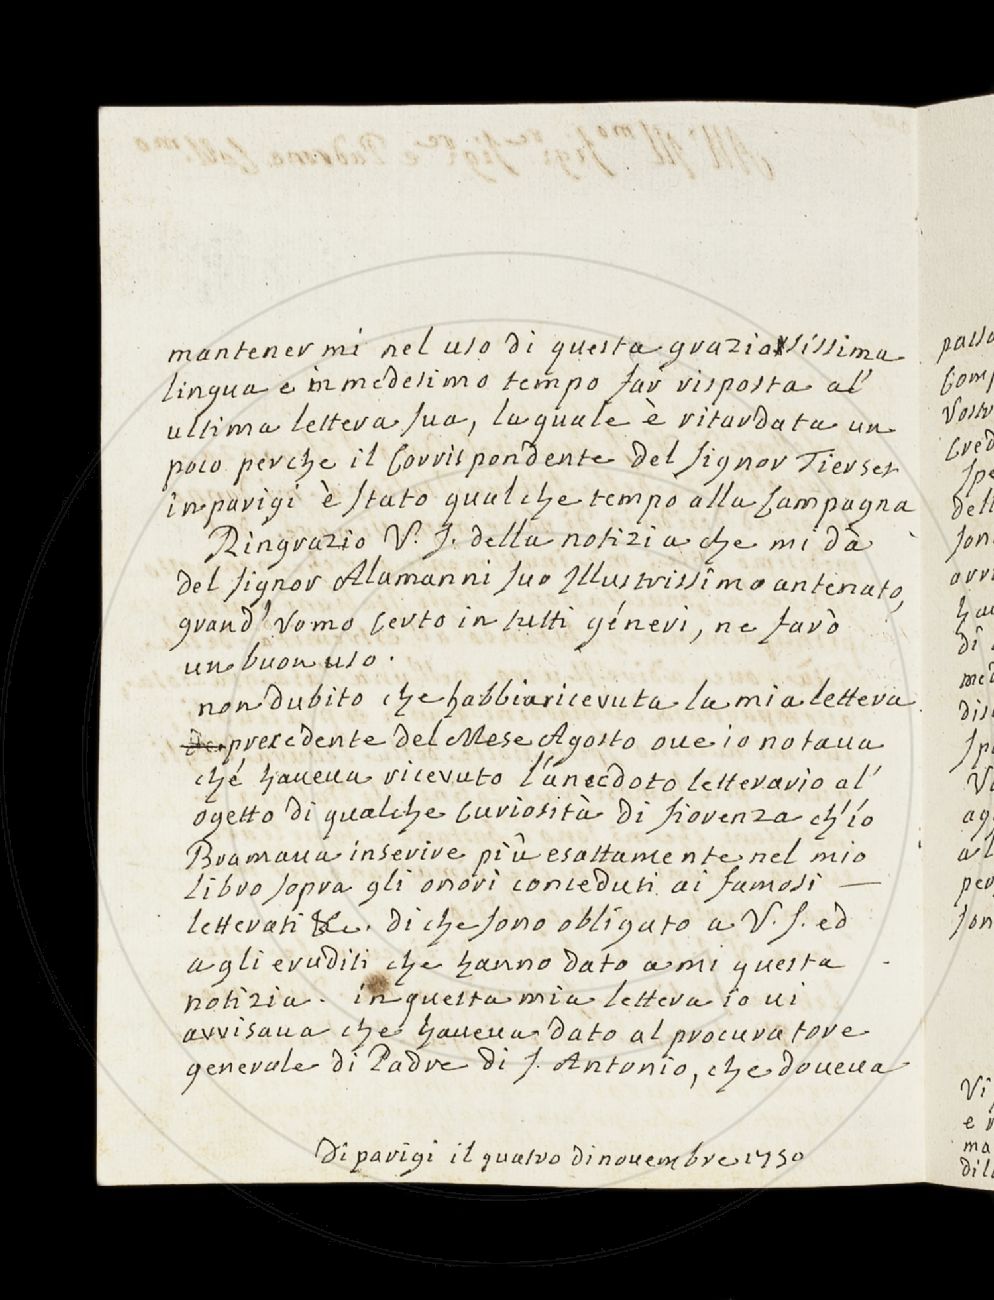 mantener mi nel uso di questa graziosissima
lingua e in medesimo tempo far risposta al'
ultima lettera sua, la quale è ritardata un
poco perche il Corrispondente del signor Tierset
in parigi è stato qualche tempo alla Campagna
Ringrazio V. S. della notizia che mi dà
del signor Alamanni suo Illustrissimo antenato,
grand' Vomo Certo in tutti géneri, ne farò
un buon uso.
non dubito che habbia ricevuta la mia lettera
precedente del Mese Agosto oue io notaua
ché haueua ricevuto l'anecdoto letterario al'
ogetto di qualche Curiosità di fiorenza ch'io
Bramaua inserire più esattamente nel mio
libro sopra gli onori conceduti ai famosi —
letterati &c. di che sono obligato a V. S. ed
a gli eruditi che hanno dato a mi questa
notizia. in questa mia lettera io ui
avvisaua che haueua dato al procuratore
generale di Padre di S. Antonio, che doueua
Di parigi il quatro di nouembre 1750